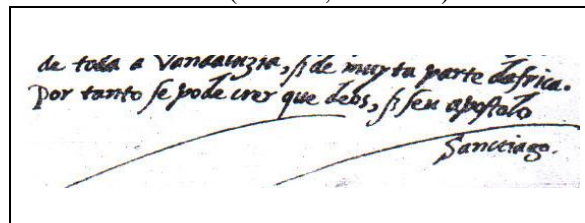 de toda a Vandaluzia, & de muyta parte dafrica.
Por tanto ſe pode crer que deos, & ſeu apoſtolo
Sanctiago.